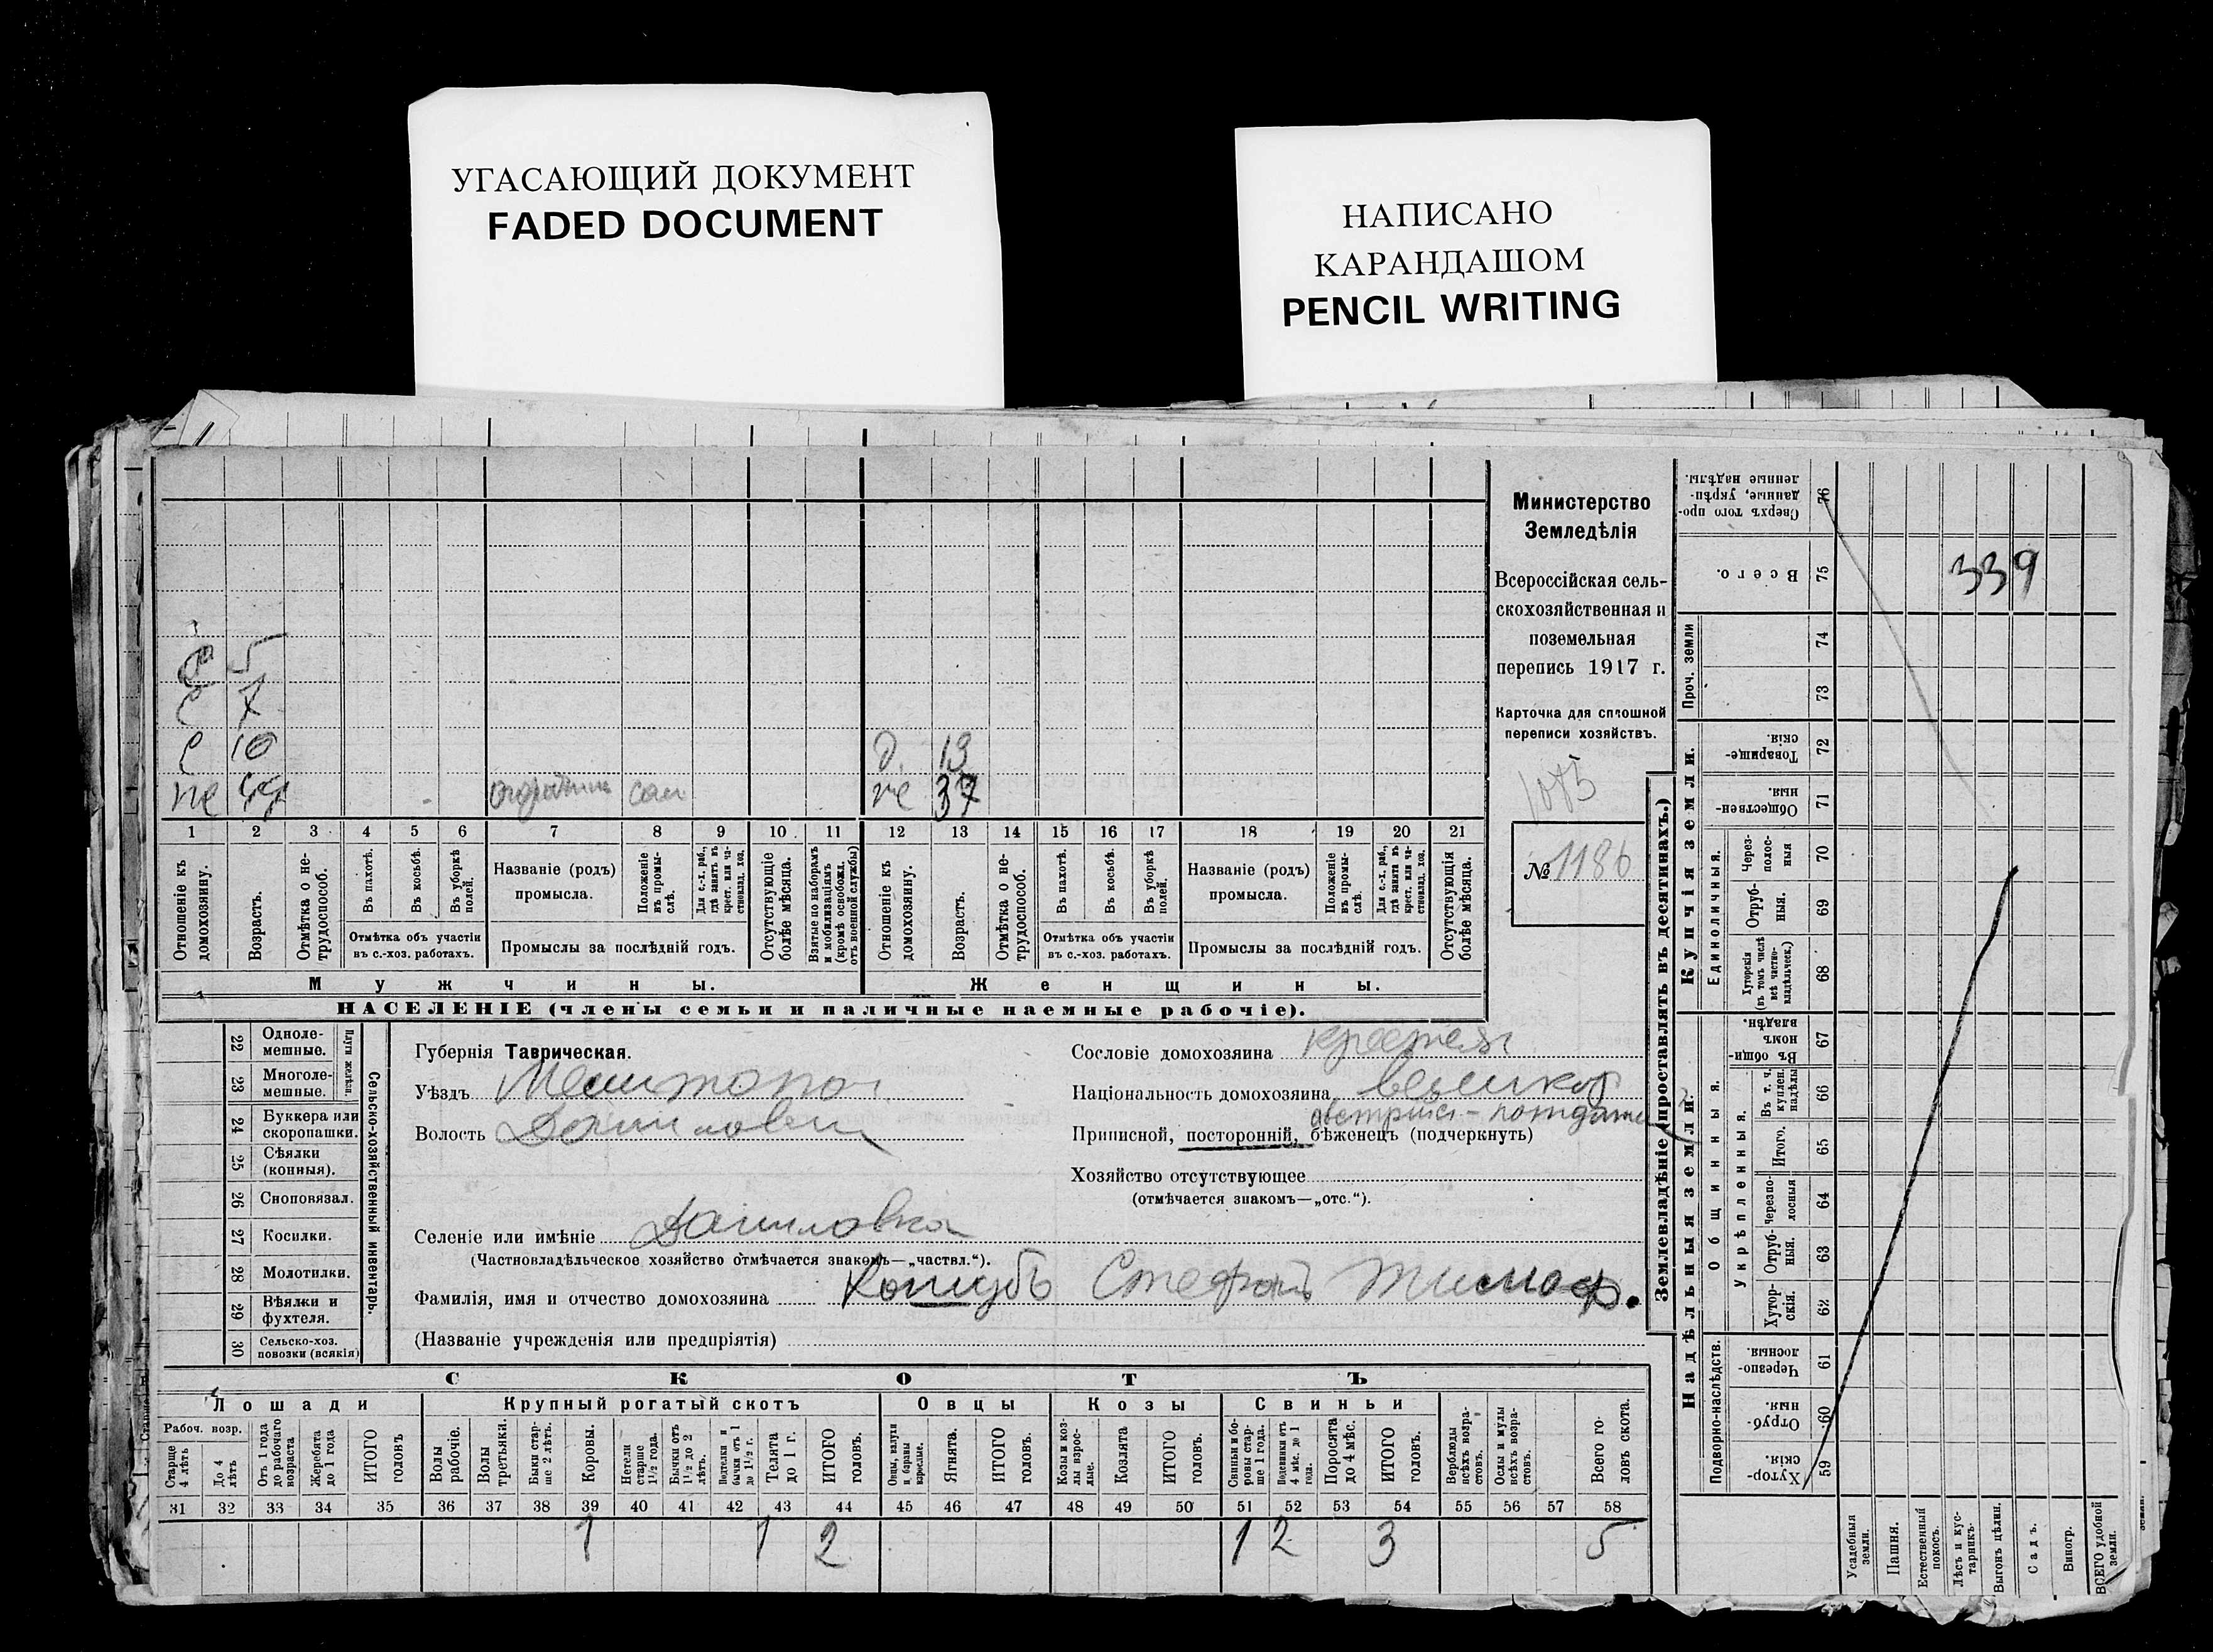 УГАСАЮЩИЙ ДОКУМЕНТ
FADED DOCUMENT
НАПИСАНО
КАРАНДАШОМ
PENCIL WRITING
5
с 7
с 10 д. 13
не сам не 37
1 2 3 4 5 6 7 8 9 10 11 12 13 14 15 16 17 18 19 20 21
Отношеніе къ домохозяину.
Возрастъ.
Отмѣтка о нетрудоспособ.
Въ пахотѣ.
Въ косьбѣ.
Въ уборкѣ полей.
Отмѣтка объ участіи
въ с.-хоз. работахъ.
Названіе (родъ)
промысла.
Положеніе въ промыслѣ.
Для с.-х. раб., гдѣ занятъ въ крест. или частновлад. хоз.
Промыслы за послѣдній годъ.
Отсутствующіе болѣе мѣсяца.
Взятые по наборамъ и мобилизаціямъ (кромѣ освобожд. отъ военной службы)
Отношеніе къ домохозяину.
Возрастъ.
Отмѣтка о нетрудоспособ.
Въ пахотѣ.
Въ косьбѣ.
Въ уборкѣ полей.
Отмѣтка объ участіи
въ с.-хоз. работахъ.
Названіе (родъ)
промысла.
Положеніе въ промыслѣ.
Для с.-х. раб., гдѣ занята въ крест. или частновлад. хоз.
Промыслы за послѣдній годъ.
Отсутствующія болѣе мѣсяца.
Мужчины. Женщины.
НАСЕЛЕНІЕ (члены семьи и наличные наемные рабочіе).
Министерство
Земледѣлія
Всероссійская сель-
скохозяйственная и
поземельная
перепись 1917 г.
Карточка для сплошной
переписи хозяйствъ.
1085
№ 1186
Сельско-хозяйственный инвентарь.
Плуги желѣзн.
22 Одноле-
мешные.
23 Многоле-
мешные.
24 Буккера или
скоропашки.
25 Сѣялки
(конныя).
26 Сноповязал.
27 Косилки.
28 Молотилки.
29 Вѣялки и
фухтеля.
30 Сельско-хоз.
повозки (всякія)
Губернія Таврическая.
Уѣздъ Мелитопо
Волость
Селеніе или имѣніе Даниловка
(Частновладѣльческое хозяйство отмѣчается знакомъ—„частвл.“).
Фамилія, имя и отчество домохозяина Коцубъ Стефанъ Тимоф.
(Названіе учрежденія или предпріятія)
Сословіе домохозяина
Національность домохозяина великор
Приписной, посторонній, бѣженецъ (подчеркнуть)
Хозяйство отсутствующее
(отмѣчается знакомъ—„отс.“).
СКОТЪ
Лошади Крупный рогатый скотъ Овцы Козы Свиньи
Рабоч. возр.
Старше 4 лѣтъ
До 4 лѣтъ
Отъ 1 года до рабочаго возраста
Жеребята до 1 года
ИТОГО головъ
Волы рабочіе.
Волы третьяки.
Быки старше 2 лѣтъ.
Коровы.
Нетели старше 1½ года.
Бычки отъ 1½ до 2 лѣтъ.
Подтелки и бычки отъ 1 до 1½ г.
Телята до 1 г.
ИТОГО головъ.
Овцы, валухи и бараны взрослые.
Ягнята.
ИТОГО головъ.
Козы и козлы взрослые.
Козлята
ИТОГО головъ.
Свиньи и боровы старше 1 года.
Подсвинки отъ 4 мѣс. до 1 года.
Поросята до 4 мѣс.
ИТОГО головъ.
Верблюды всѣхъ возрастовъ.
Ослы и мулы всѣхъ возрастовъ.
Всего головъ скота.
31 32 33 34 35 36 37 38 39 40 41 42 43 44 45 46 47 48 49 50 51 52 53 54 55 56 57 58
1 1 2 1 2 3 5
Землевладѣніе (проставлять въ десятинахъ.)
Надѣльныя земли. Купчія земли. Проч. земли
Подворно-наслѣдств. Общинныя. Укрѣпленныя. Единоличныя.
59 Хутор-
скія.
60 Отруб-
ныя.
61 Черезпо-
лосныя
62 Хутор-
скія.
63 Отруб-
ныя.
64 Черезпо-
лосныя
65 Итого.
66 Въ т. ч. куплен. надѣлы
67 Въ общин-
номъ
владѣн.
68 Хуторскія (въ томъ числѣ всѣ частно-владѣльческ.)
69 Отруб-
ныя.
70 Через-
полос-
ныя
71 Обществен-
ныя.
72 Товарище-
скія.
73
74
75 Всего.
76 Сверхъ того про-
данные, укрѣп-
ленные надѣлы.
339
Усадебныя земли.
Пашня.
Естественный покосъ.
Лѣсъ и кустарникъ.
Выгонъ цѣлин.
Садъ.
Виногр.
ВСЕГО удобной земли.